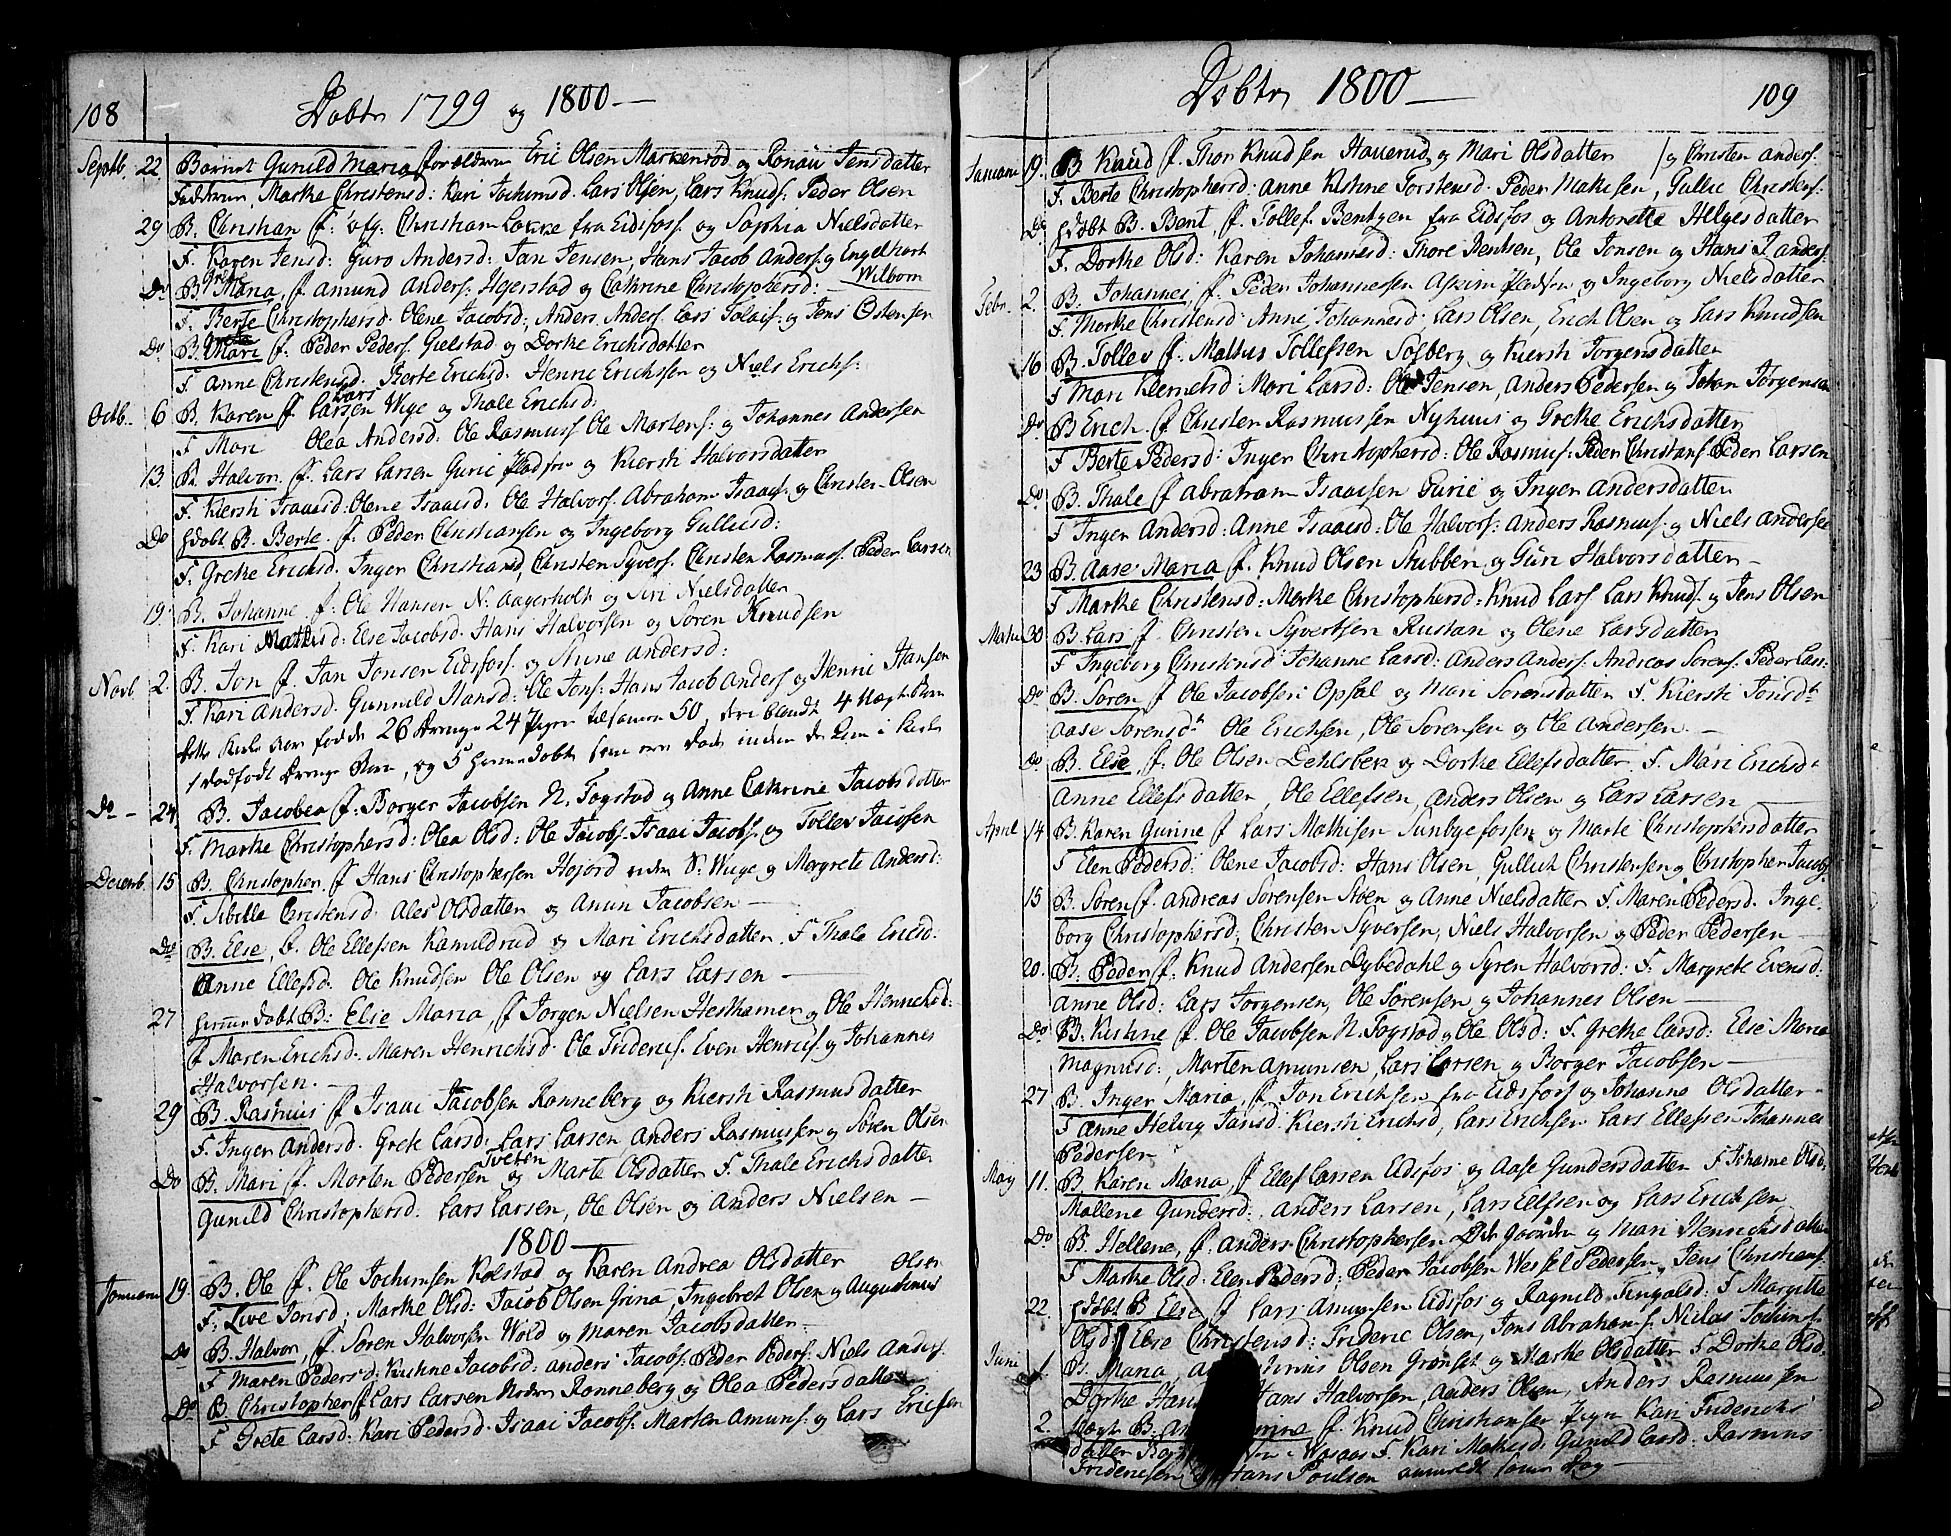 108
Døbte 1799 og 1800 —
Septb. 22 Barnet Gunild Maria Forældrene Eric Olsen Markerød og Ronau Jensdatter
Fadderne, Marthe Christensd: Kari Jochumsd. Lars Olsen, Lars Knuds: Peder Olsen
29 B. Christian f: Christian Løkke fra Eidsfoss: og Sophia Nielsdatter
F. Karen Jensd: Guro Andersd: Jan Jensen, Hans Jacob Anders: og Engelhart
Wilborn
Do B. Maria, f Amund Anders: Hejerstad og Cathrine Christophersd:
F. Berte Christophersd. Olene Jacobsd: Anders Anders: Lars Tolais: og Jens Ostensen
Do B. Mari f: Peder Peders: Gielstad og Dorthe Erichsdatter
F Anne Christensd: Berte Erichsd. Henric Erichsen og Niels Erichs:
Octb. 6 B. Karen f Lars Larsen Wige og Thale Erichsd:
F Mari Olea Andersd: Ole Rasmuss Ole Martens: og Johannes Andersen
13. B. Halvor f. Lars Larsen Gurie og Kiersti Halvorsdatter
F. Kiersti Isaacsd: Olene Isaacsd. Ole Halvors: Abraham Isaacs: og Christen Olsen
Do hdøbt B. Berte f. Peder Christiansen og Ingeborg Gullicsd:
F. Grethe Erichsd. Inger Christiansd, Christen Syvers: Christen Rasmuss: Peder Larsen
19. B. Johanne f: Ole Hansen N: Aagerholt og Siri Nielsdatter
F. Kari Mathisd: Else Jacobsd. Hans Halvorsen og Søren Knudsen
Novb. 2. B. Jon f Jan Jonsen Eidsfoss. og Anne Andersd:
F. Kari Andersd. Gunnild Hansd: Ole Jons: Hans Jacob Anders: og Henric Hansen
26 Drenge 24 Piger tilsammen 50, deri blandt 4
1 Dødfødt Drenge Barn, og 5 hiemmedøbt som
Do — 24. B. Jacobea f: Borger Jacobsen N. Fogstad og Anne Cathrine Jacobsdatter
F. Marthe Christophersd: Olea Olsd: Ole Jacobs. Isaac Jacobs: og Tollev Jacobsen
Decemb. 15 B. Christopher, f Hans Christophersen Hojord under S: Wige og Margrete Andersd:
F. Sibille Christensd. Ales Olsdatter og Amun Jacobsen —
Do B. Else, f. Ole Ellefsen Kamildrud og Mari Erichsdatter. F Thale Ericsd:
Anne Ellefsd. Ole Knudsen Ole Olsen og Lars Larsen —
27 hiemme døbt B: Else Maria, f Jørgen Nielsen Hesthamer og Ole Henrichsd:
f Maren Erichsd: Maren Henrichsd. Ole Friderics. Even Henrics. og Johannes
Halvorsen. —
29 B. Rasmus f Isaac Jacobsen Ronneberg og Kiersti Rasmusdatter
F. Inger Andersd. Grete Larsd. Lars Larsen Anders Rasmussen og Søren Olsen
Do B. Mari f Morten Pedersen Tveten og Marte Olsdatter F. Thale Erichsdatter
Gunild Christophersd: Lars Larsen, Ole Olsen og Anders Nielsen —
1800 —
Januarii 19. B. Ole f. Ole Jochumsen Kolstad og Karen Andrea Olsdatter Olsen
F. Live Jensd: Marthe Olsd: Jacob Olsen Grina, Ingebret Olsen og Augustinus
Do B. Halvor, f. Søren Halvorsen Wold og Maren Jacobsdatter
F Maren Pedersd: Kirstine Jacobsd: Anders Jacobs: Peder Peders. Niels Anders:
Do B Christopher f Lars Larsen Nedre Ronneberg og Olea Pedersdatter
F Grete Larsd: Kari Pedersd. Isaac Jacobs: Marten Amuns: og Lars Ericsen
109
Døbte 1800 —
Januarii 19. B Knud f. Thor Knudsen Haverud og Mari Olsdatter / og Christen Anders:
F. Berte Christophersd: Anne Kistine Torstensd. Peder Mathisen, Gullic Christens:
Do hdøbt B. Bent, f. Tollef Bentzen fra Eidsfos og Antonette Helgesdatter
F. Dorthe Olsd: Karen Johannesd: Thore Bentsen, Ole Jonsen og Hans J Anders:
Febr. 2. B. Johannes, f. Peder Johannesen Askim og Ingeborg Nielsdatter
F. Marthe Christensd: Anne Johannesd: Lars Olsen, Erich Olsen og Lars Knudsen
16 B. Tollev f: Mathis Tollefsen Solberg og Kiersti Jorgensdatter
F Mari Klemetsd: Mari Larsd: Ole Jensen, Anders Pedersen og Johan Jørgensen
Do B Erich. f Christen Rasmussen Nyhuus og Grethe Erichsdatter
F Berte Pedersd: Inger Christophersd: Ole Rasmus: Peder Christians Peder Larsen
Do B. Thale f Abraham Isaacsen Gurie og Inger Andersdatter
F Inger Andersd: Anne Isaacsd: Ole Halvors: Anders Rasmus: og Niels Andersen
23 B. Aase Maria f. Knud Olsen Stubben og Guri Halvorsdatter —
F Marthe Christensd: Marthe Christophersd: Knud Lars Lars Knuds. og Jens Olsen
Martii 30 B. Lars f. Christen Syvertsen Rustan og Olene Larsdatter
F Ingeborg Christensd Johanne Larsd: Anders Anders: Andreas Sørens. Peder Lars:
Do B. Søren f Ole Jacobsen Opsal og Mari Sørensdatter F. Kiersti Jonsdr
Aase Sørensdr Ole Erichsen, Ole Sørensen og Ole Andersen. —
Do B. Else, f. Ole Olsen Dehlsbek og Dorthe Ellefsdatter F. Mari Erichsd.
Anne Ellefsdatter, Ole Ellefsen, Anders Olsen og Lars Larsen —
April 14 B. Karen Gurine f Lars Mathisen Sunbyefossen og Marte Christophersdatter
F Elen Pedersd: Olene Jacobsd: Hans Olsen, Gullich Christensen og Christopher Jacobs:
15 B. Søren f. Andreas Sørensen Stoen og Anne Nielsdatter F. Maren Pedersd. Inge-
borg Christophersd, Christen Syversen, Niels Halvorsen og Peder Pedersen —
20. B. Peder f. Knud Andersen Dybedahl og Syren Halvorsd: F. Margrete Evensd.
Anne Olsd: Lars Jorgensen, Ole Sørensen og Johannes Olsen —
Do B. Kistine f. Ole Jacobsen N. Fogstad og Ole Olsd: F. Grethe Larsd: Else Maria
Magnusd:, Morten Amunsen, Lars Larsen og Borger Jacobsen —
27 B. Inger Maria, f Jon Erichsen fra Eidsfoss og Johanne Olsdatter —
F Anne Helvig Jansd. Kiersti Erichsd, Lars Erichsen Lars Ellefsen Johannes
Pedersen
May 11. B Karen Maria, f Ellef Larsen Eidsfos og Aase Gundersdatter F Johanne Olsd.
Mallene Gundersd: Anders Larsen, Lars Ellefsen og Lars Erichsen
Do B. Hellene, f. Anders Christophersen og Mari Henrichsdatter
F Marthe Olsd: Elen Pedersd: Peder Jacobsen Wessel Pedersen, Jens Christians.
22 hdøbt B Else f Lars Amunsen Eidsfos og Ragnild Fingalsd: F Margitte
Olsd: Else Christensd: Frideric Olsen, Jens Abrahams. Niclas Jochums:
Juni 1. B. Maria, Olsen Grønset og Marthe Olsdatter F Dorthe Olsd.
Dorthe Hans Hans Halvorsen, Anders Olsen, Anders Rasmussen
2. B. f. Knud Christiansen Kari Friderichs
datter F. Kari Mathisd. Gunild Larsd. Rasmus
Fridericsen Hans Poulsen